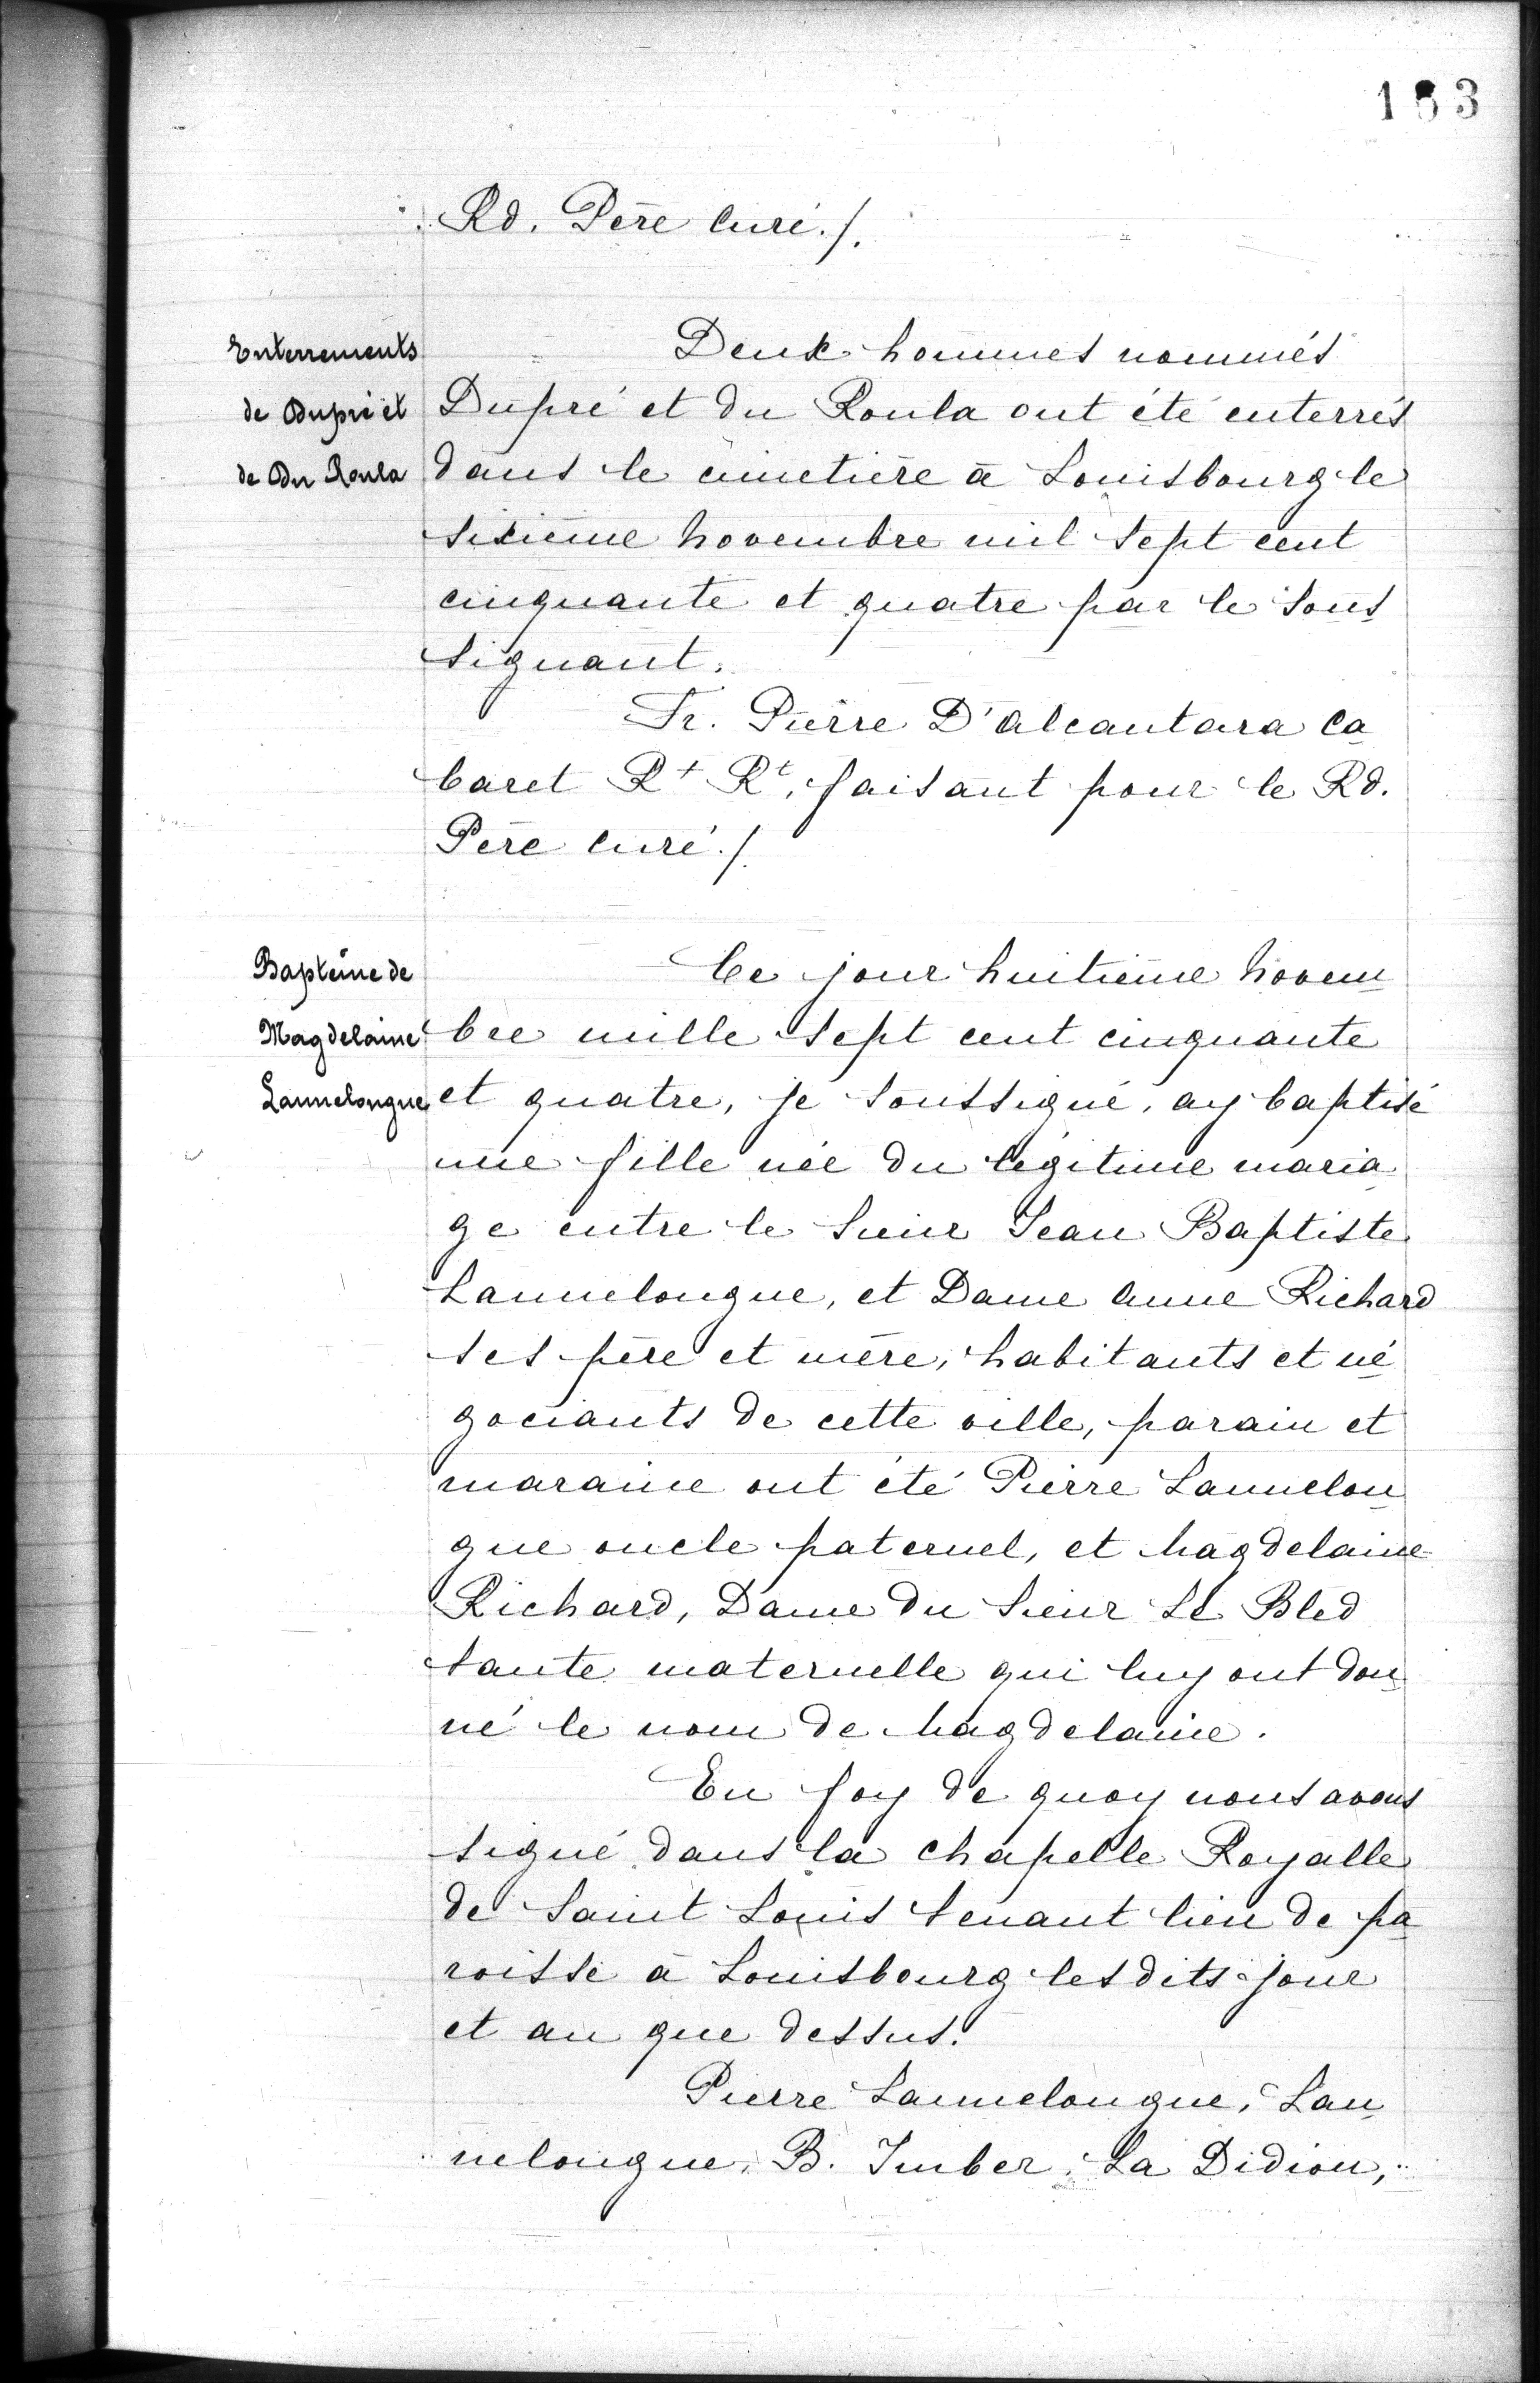 183
Rd. Père Curé./.
Enterrements
de Dupré et
de Du Roula
Deux hommes nommés
Dupré et du Roula ont été enterrés
dans le cimetière à Louisbourg le
sixième Novembre mil sept cent
cinquante et quatre par le sous
signant.
Fr. Pierre D'Alcantara Ca
baret Rt Rt, faisant pour le Rd.
Père Curé./.
Baptême de
Magdelaine
Lannelongue
Ce jour huitième Novem
bre mille sept cent cinquante
et quatre, je soussigné, ay baptisé
une fille née du légitime maria
ge entre le Sieur Jean Baptiste
Lannelongue, et Dame Anne Richard
ses père et mère, habitants et né
gociants de cette ville, parain et
maraine ont été Pierre Lannelon
gue oncle paternel, et Magdelaine
Richard, Dame du Sieur Le Bled
tante maternelle qui luy ont don
né le nom de Magdelaine.
En foy de quoy nous avons
signé dans la chapelle Royalle
de Saint Louis tenant lieu de pa
roisse à Louisbourg les dits jour
et an que dessus.
Pierre Lannelongue, Lan
nelongue, B. Imber, La Didion,